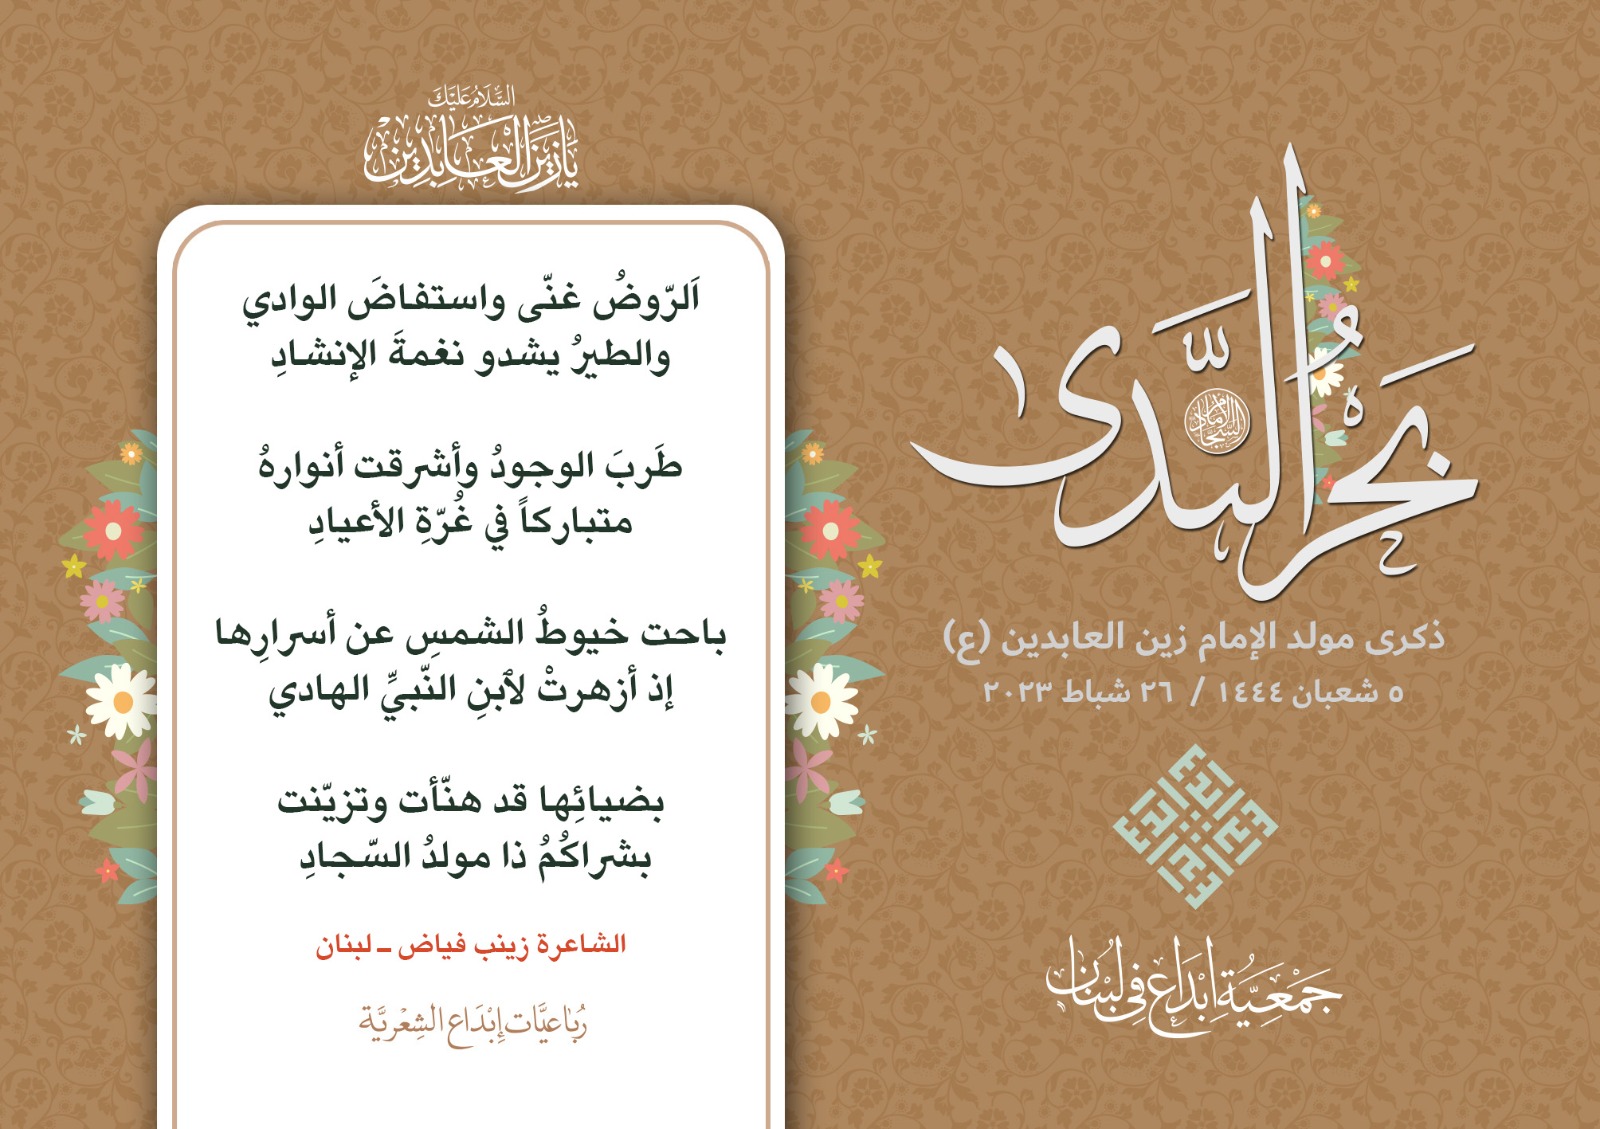 بحر الندى
الإمام السجاد
ذكرى مولد الإمام زين العابدين (ع)
٥ شعبان ١٤٤٤ / ٢٦ شباط ٢٠٢٣
إبداع
جَمْعِيَّة إِبْدَاع فِي لُبْنَان
السَّلَامُ عَلَيْكَ
يَا زَيْنَ الْعَابِدِين
اَلرّوضُ غنّى واستفاضَ الوادي
والطيرُ يشدو نغمةَ الإنشادِ
طَربَ الوجودُ وأشرقت أنوارهُ
متباركاً في غُرّةِ الأعيادِ
باحت خيوطُ الشمسِ عن أسرارِها
إذ أزهرتْ لٱبنِ النّبيِّ الهادي
بضيائِها قد هنّأت وتزيّنت
بشراكُمُ ذا مولدُ السّجادِ
الشاعرة زينب فياض ـ لبنان
رُبَاعيَّات إِبْدَاع الشِعْريَّة